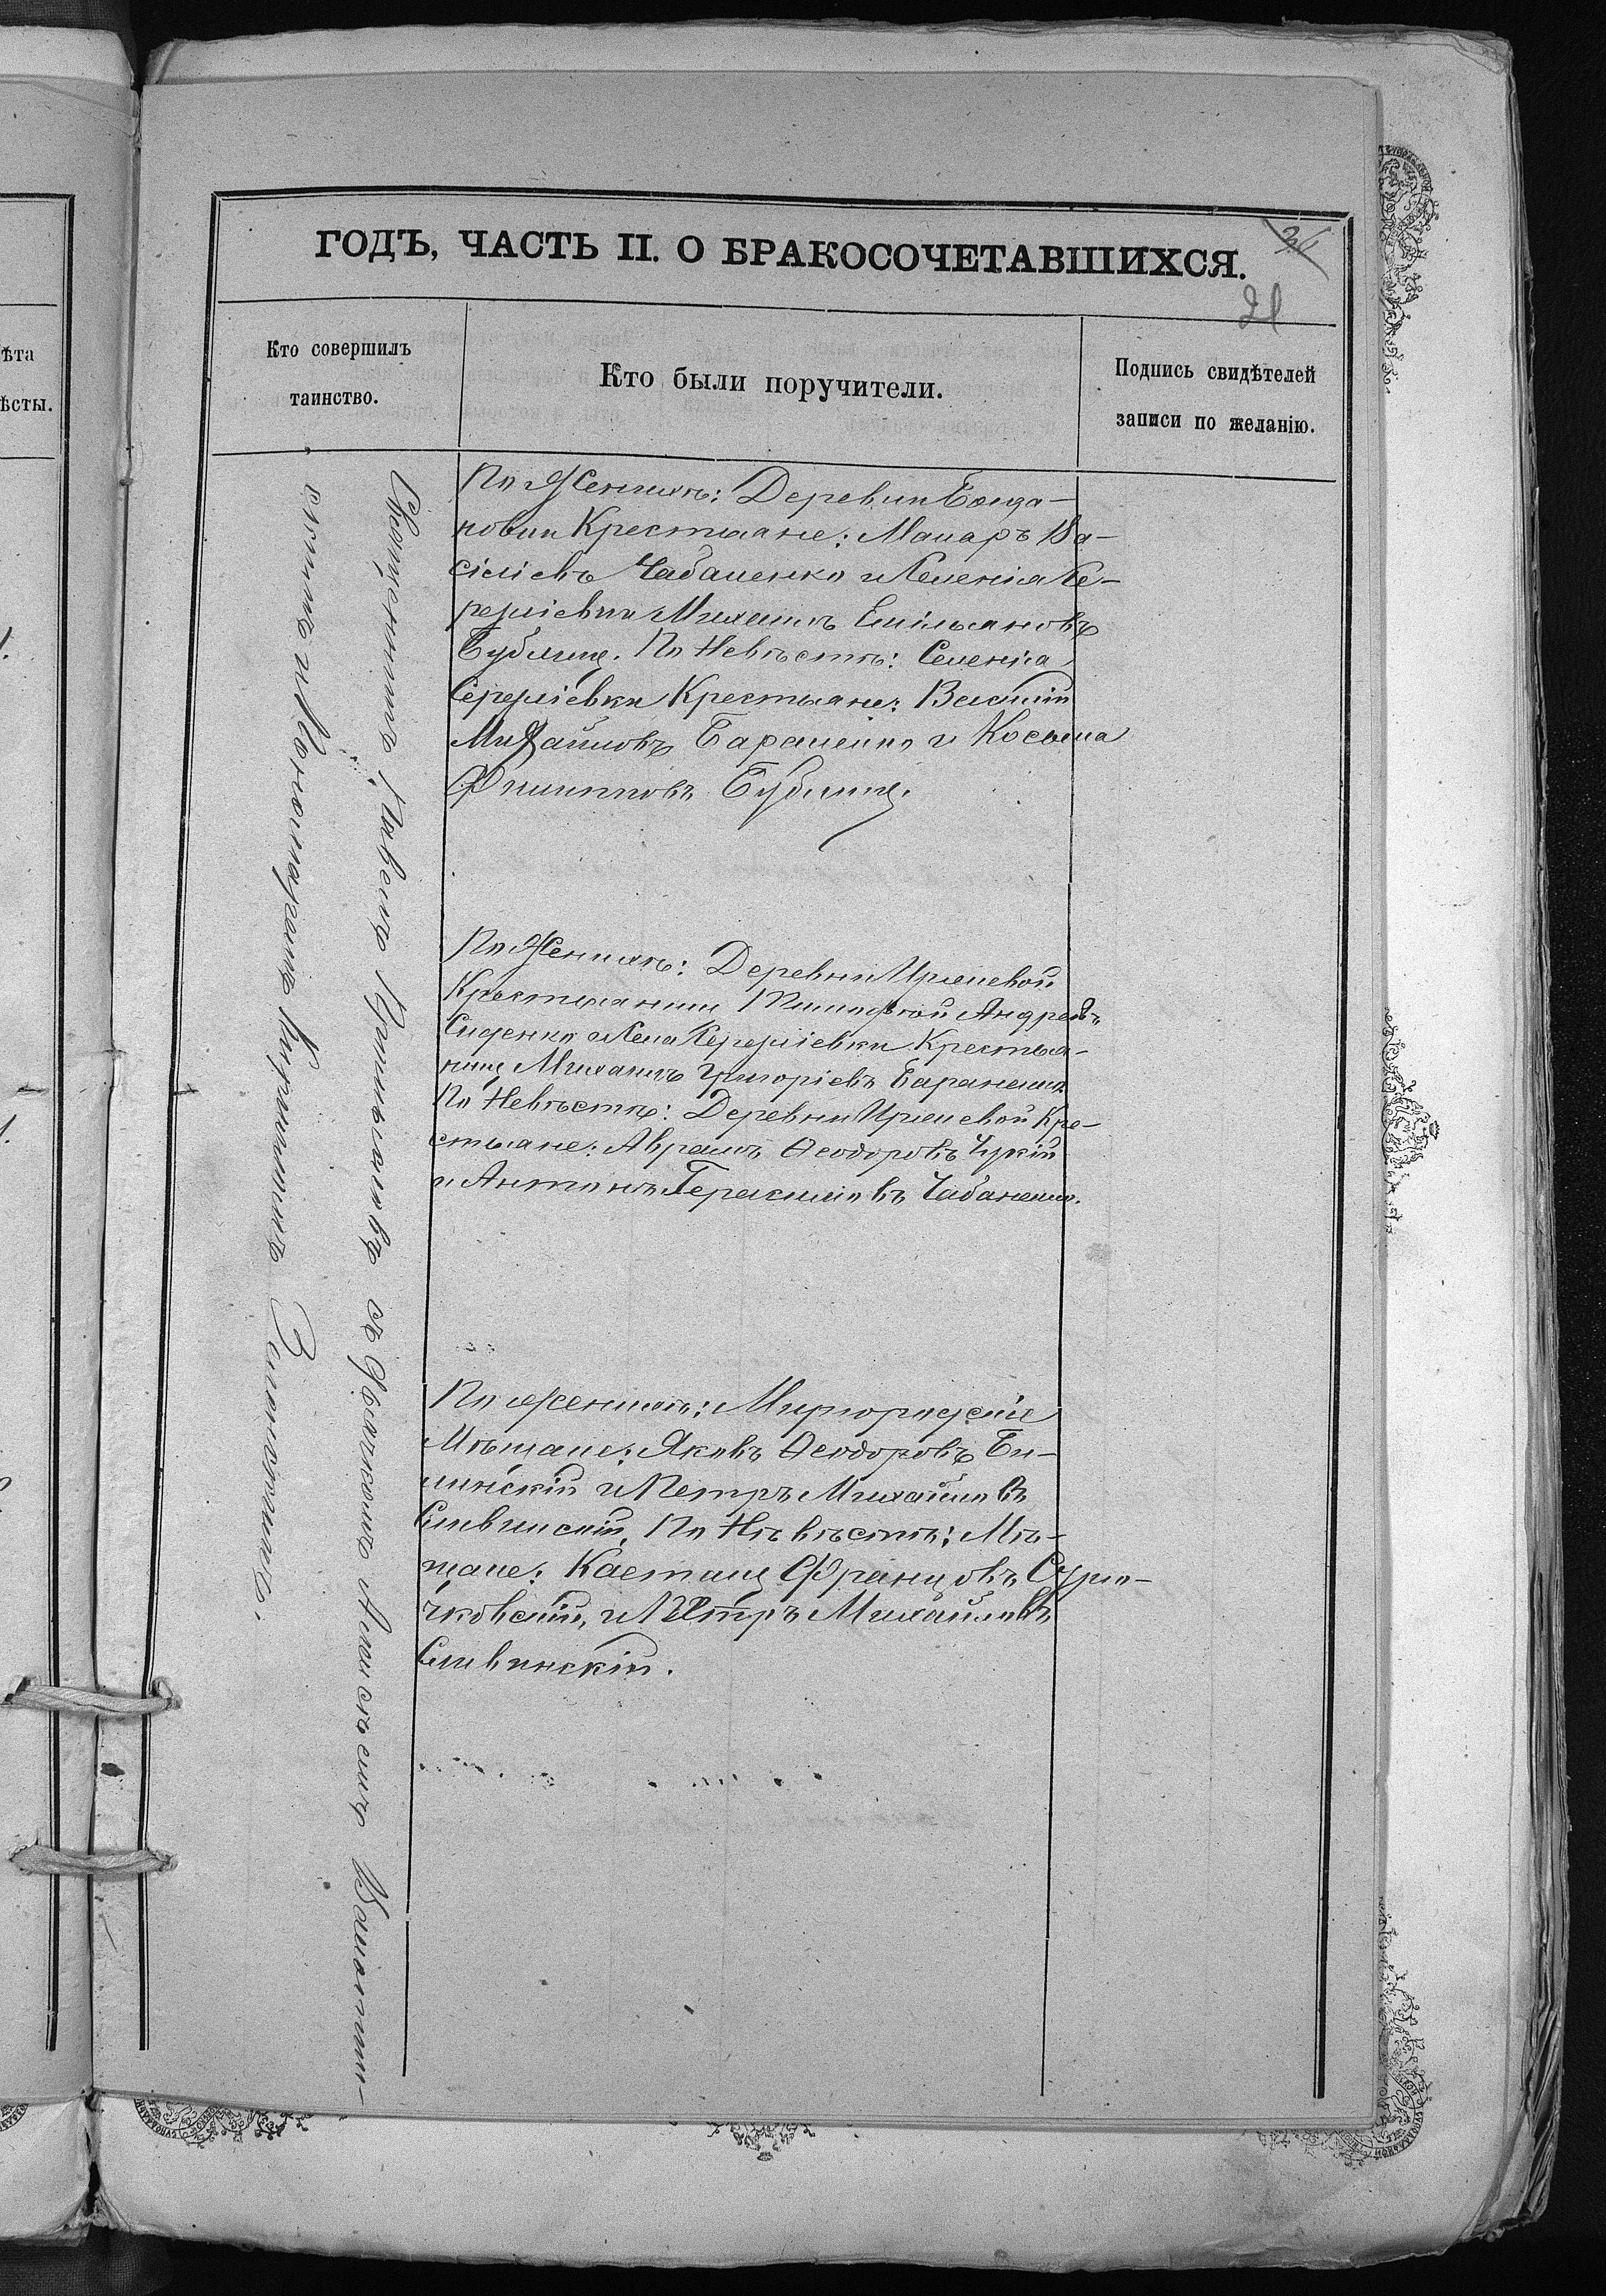 ГОДЪ, ЧАСТЬ II. О БРАКОСОЧЕТАВШИХСЯ.
21
Кто совершилъ
таинство.
Кто были поручители.
Подпись свидѣтелей
записи по желанію.
ѣта
ѣсты.
Священникъ Павелъ съ Дьячкомъ Алексѣемъ
и Пономаремъ
По Женихѣ: Деревни Богда-
новки Крестьяне: Макаръ Ва-
сіліевъ Чабаненко и Селенія Се-
редіевки Михаилъ Еміліановъ
Бублик. По Невѣстѣ: Селенія
Середіевки Крестьяне: Василій
Михайловъ Бараненко и Косьма
Филипповъ Бублик.
По Женихѣ: Деревни Иршевой
Крестьянинъ Андреевъ
Сиденко и Села Середіевки Крестья-
нинъ Михаилъ Григоріевъ Бараненко
По Невѣстѣ: Деревни Иршевой Кре-
стьяне: Аврамъ Ѳеодоровъ
и Антонъ Герасимовъ Чабаненко.
По женихѣ: Миргородскіе
Мѣщане: Яковъ Ѳеодоровъ Би-
линскій и Петръ Михайловъ
Сливинскій. По Невѣстѣ: Мѣ-
щане: Каетанъ Францовъ
и Петръ Михайловъ
Сливинскій.